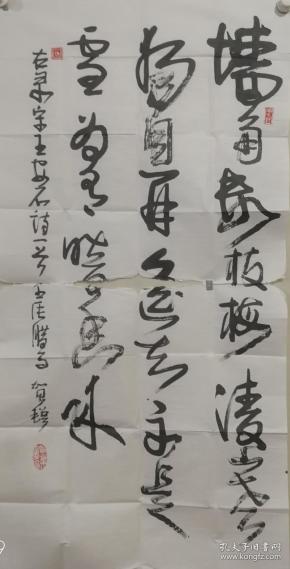 墙角数枝梅凌寒
独自开遥知不是
雪为有暗香来
右录宋王安石诗一首
孔夫子旧书网